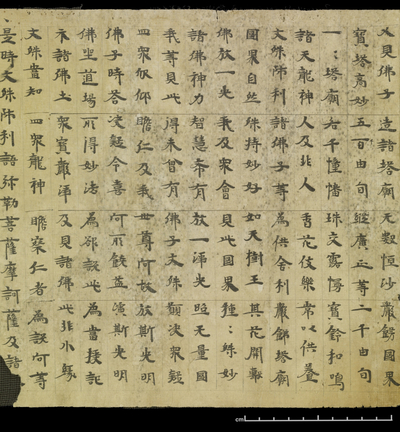 又見佛子 造諸塔廟 无數恒沙 嚴飾國界
寶塔高妙 五百由旬 縱廣正等 二千由旬
一一塔廟 各千幢幡 珠交露幔 寶鈴和鳴
諸天龍神 人及非人 香花伎樂 常以供養
文殊師利 諸佛子等 為供舍利 嚴飾塔廟
國界自然 殊特妙好 如天樹王 其花開敷
佛放一光 我及眾會 見此國界 種種殊妙
諸佛神力 智慧希有 放一淨光 照无量國
我等見此 得未曾有 佛子文殊 願決眾疑
四眾欣仰 瞻仁及我 世尊何故 放斯光明
佛子時答 決疑令喜 何所饒益 演斯光明
佛坐道場 所得妙法 為欲說此 為當授記
示諸佛土 眾寶嚴淨 及見諸佛 此非小緣
文殊當知 四眾龍神 瞻察仁者 為說何等
是時文殊師利語弥勒菩薩摩訶薩及諸
cm